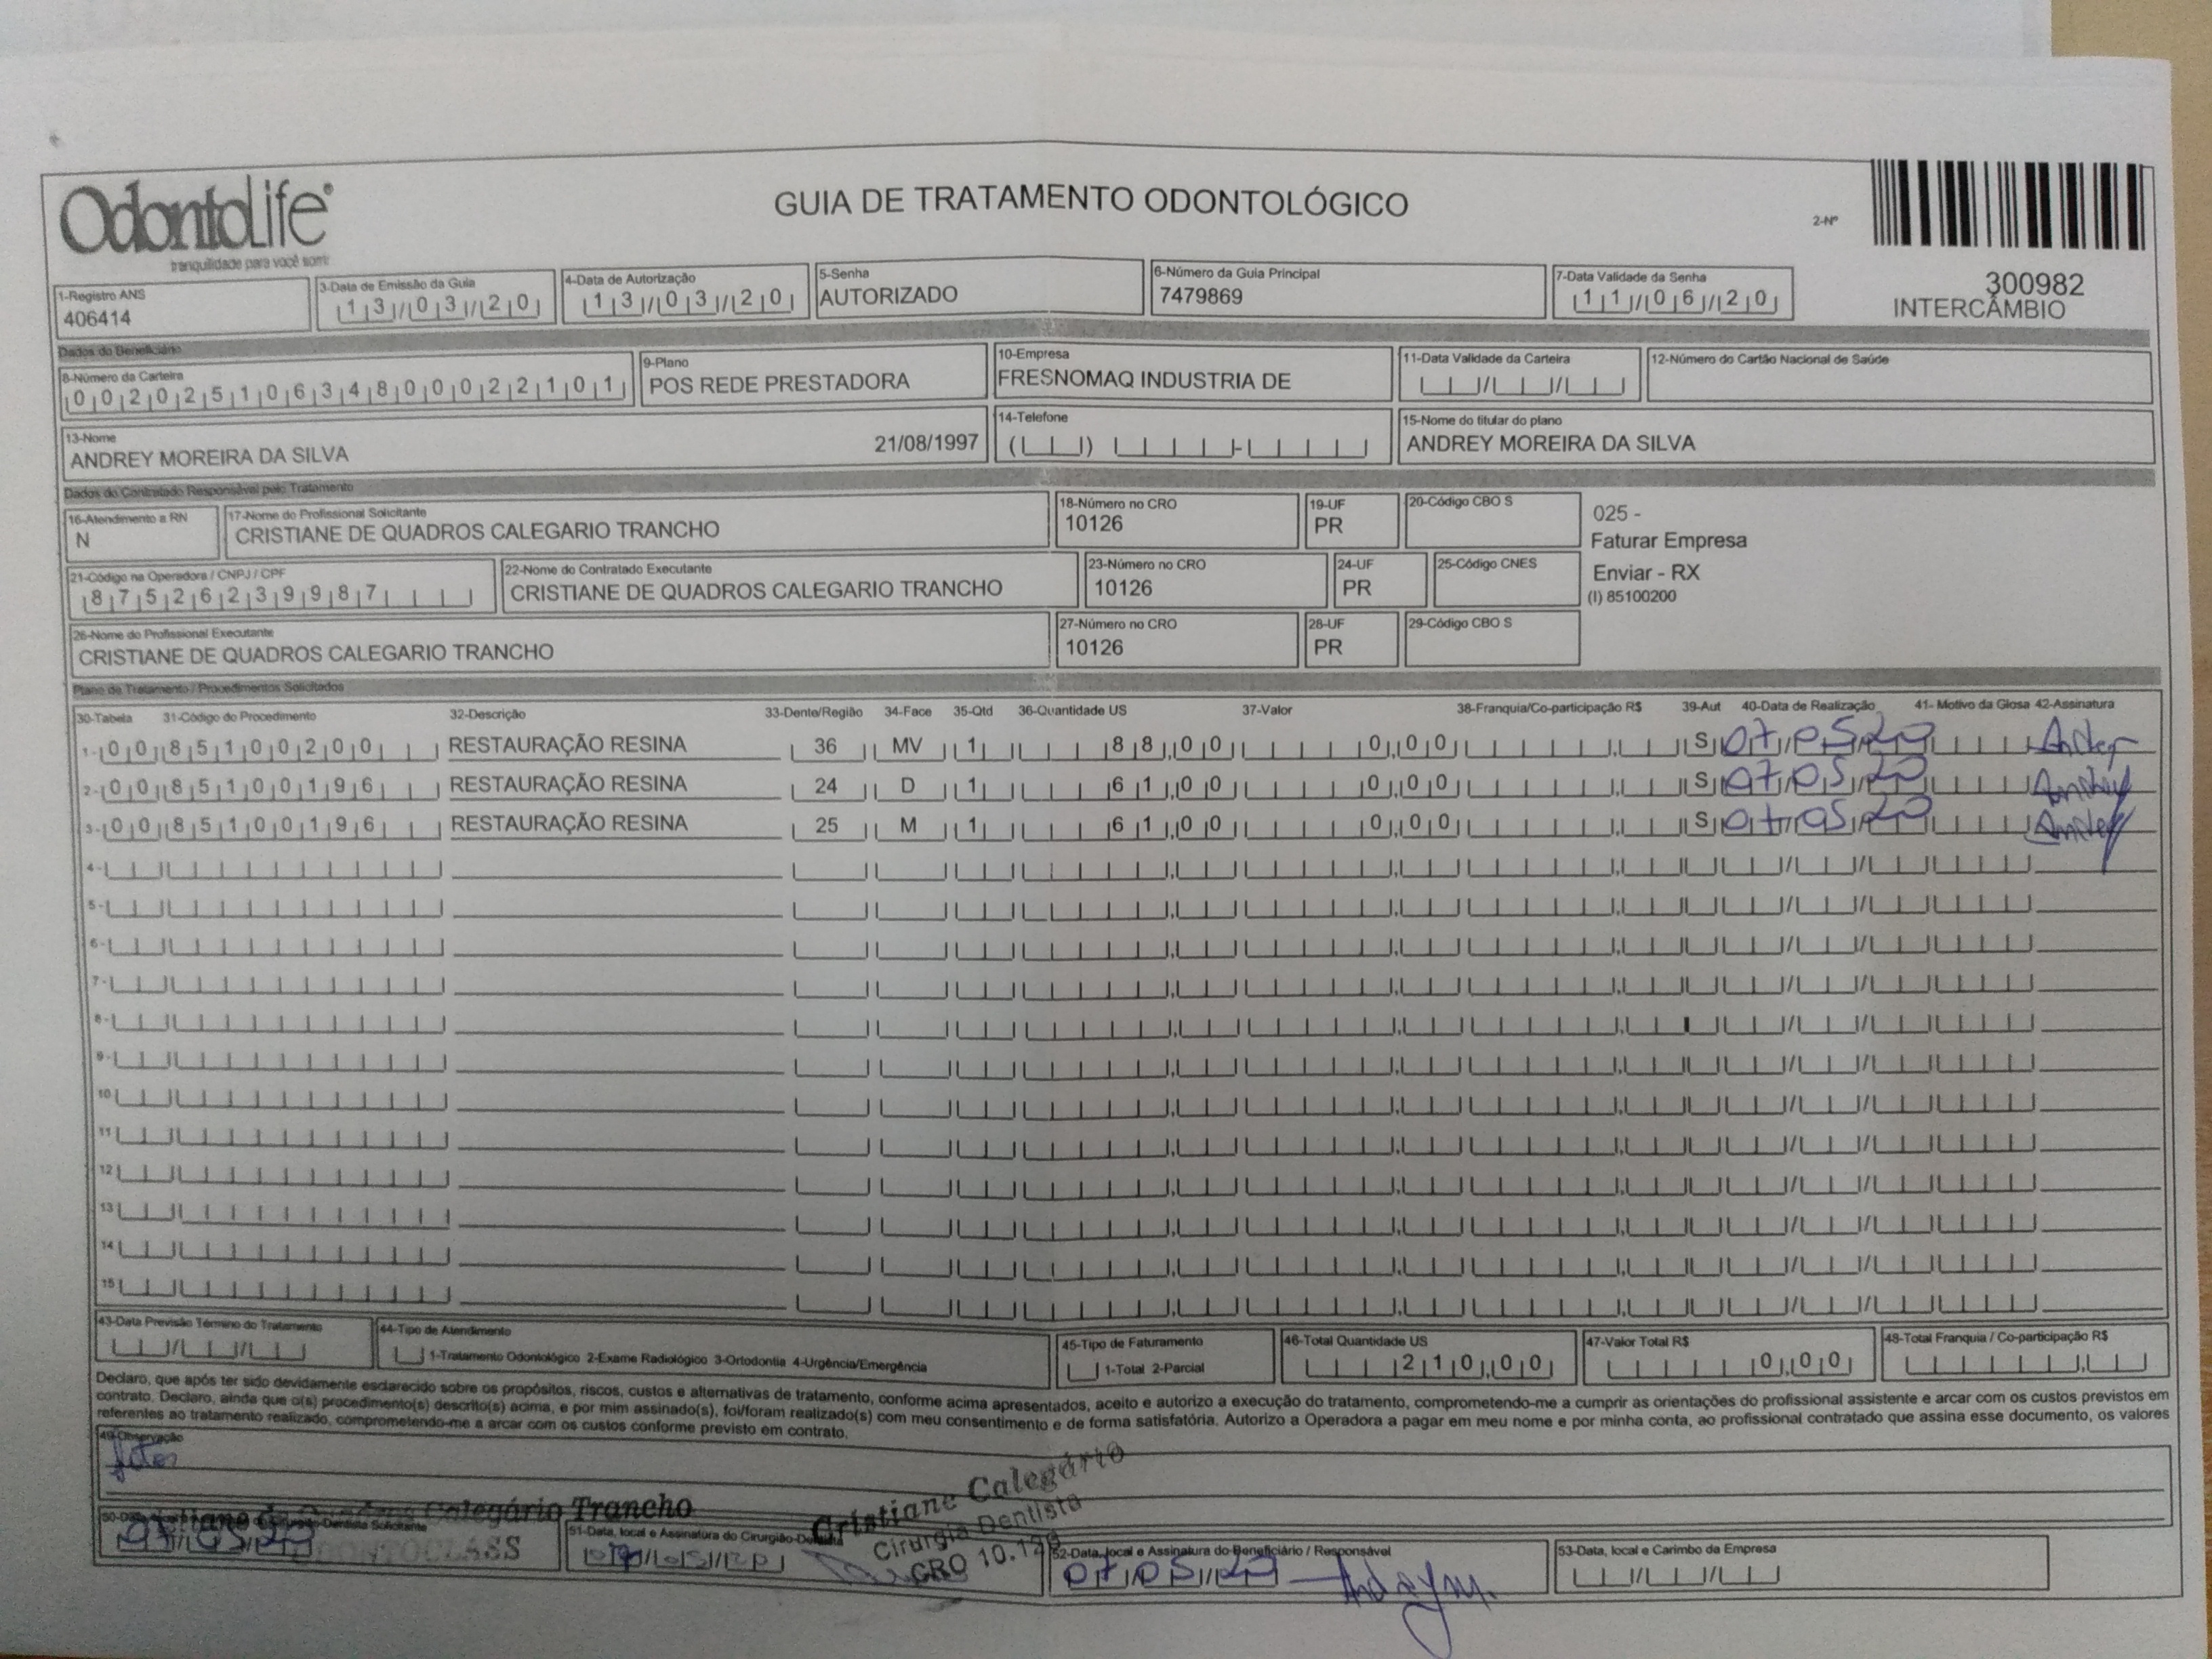 OdontoLife®
tranquilidade para você sorrir
GUIA DE TRATAMENTO ODONTOLÓGICO
2-Nº
300982
INTERCÂMBIO
1-Registro ANS
406414
3-Data de Emissão da Guia
13/03/20
4-Data de Autorização
13/03/20
5-Senha
AUTORIZADO
6-Número da Guia Principal
7479869
7-Data Validade da Senha
11/06/20
Dados do Beneficiário
8-Número da Carteira
00202510634800022101
9-Plano
POS REDE PRESTADORA
10-Empresa
FRESNOMAQ INDUSTRIA DE
11-Data Validade da Carteira
12-Número do Cartão Nacional de Saúde
13-Nome
ANDREY MOREIRA DA SILVA 21/08/1997
14-Telefone
15-Nome do titular do plano
ANDREY MOREIRA DA SILVA
Dados do Contratado Responsável pelo Tratamento
16-Atendimento a RN
N
17-Nome do Profissional Solicitante
CRISTIANE DE QUADROS CALEGARIO TRANCHO
18-Número no CRO
10126
19-UF
PR
20-Código CBO S
025 -
Faturar Empresa
Enviar - RX
(I) 85100200
21-Código na Operadora / CNPJ / CPF
87526239987
22-Nome do Contratado Executante
CRISTIANE DE QUADROS CALEGARIO TRANCHO
23-Número no CRO
10126
24-UF
PR
25-Código CNES
26-Nome do Profissional Executante
CRISTIANE DE QUADROS CALEGARIO TRANCHO
27-Número no CRO
10126
28-UF
PR
29-Código CBO S
Plano de Tratamento / Procedimentos Solicitados
30-Tabela 31-Código do Procedimento 32-Descrição 33-Dente/Região 34-Face 35-Qtd 36-Quantidade US 37-Valor 38-Franquia/Co-participação R$ 39-Aut 40-Data de Realização 41- Motivo da Glosa 42-Assinatura
1- 00 85100200 RESTAURAÇÃO RESINA 36 MV 1 88,00 0,00 S 07/05/20 Andrey
2- 00 85100196 RESTAURAÇÃO RESINA 24 D 1 61,00 0,00 S 07/05/20 Andrey
3- 00 85100196 RESTAURAÇÃO RESINA 25 M 1 61,00 0,00 S 07/05/20 Andrey
4-
5-
6-
7-
8-
9-
10
11
12
13
14
15
43-Data Previsão Término do Tratamento
44-Tipo de Atendimento
1-Tratamento Odontológico 2-Exame Radiológico 3-Ortodontia 4-Urgência/Emergência
45-Tipo de Faturamento
1-Total 2-Parcial
46-Total Quantidade US
210,00
47-Valor Total R$
0,00
48-Total Franquia / Co-participação R$
Declaro, que após ter sido devidamente esclarecido sobre os propósitos, riscos, custos e alternativas de tratamento, conforme acima apresentados, aceito e autorizo a execução do tratamento, comprometendo-me a cumprir as orientações do profissional assistente e arcar com os custos previstos em
contrato. Declaro, ainda que o(s) procedimento(s) descrito(s) acima, e por mim assinado(s), foi/foram realizado(s) com meu consentimento e de forma satisfatória. Autorizo a Operadora a pagar em meu nome e por minha conta, ao profissional contratado que assina esse documento, os valores
referentes ao tratamento realizado, comprometendo-me a arcar com os custos conforme previsto em contrato.
49-Observação
Calegário Trancho
ODONTOCLASS
07/05/20
51-Data, local e Assinatura do Cirurgião-Dentista
07/05/20
Cristiane Calegário
Cirurgiã-Dentista
CRO 10.126
52-Data, local e Assinatura do Beneficiário / Responsável
07/05/20 Andrey M.
53-Data, local e Carimbo da Empresa